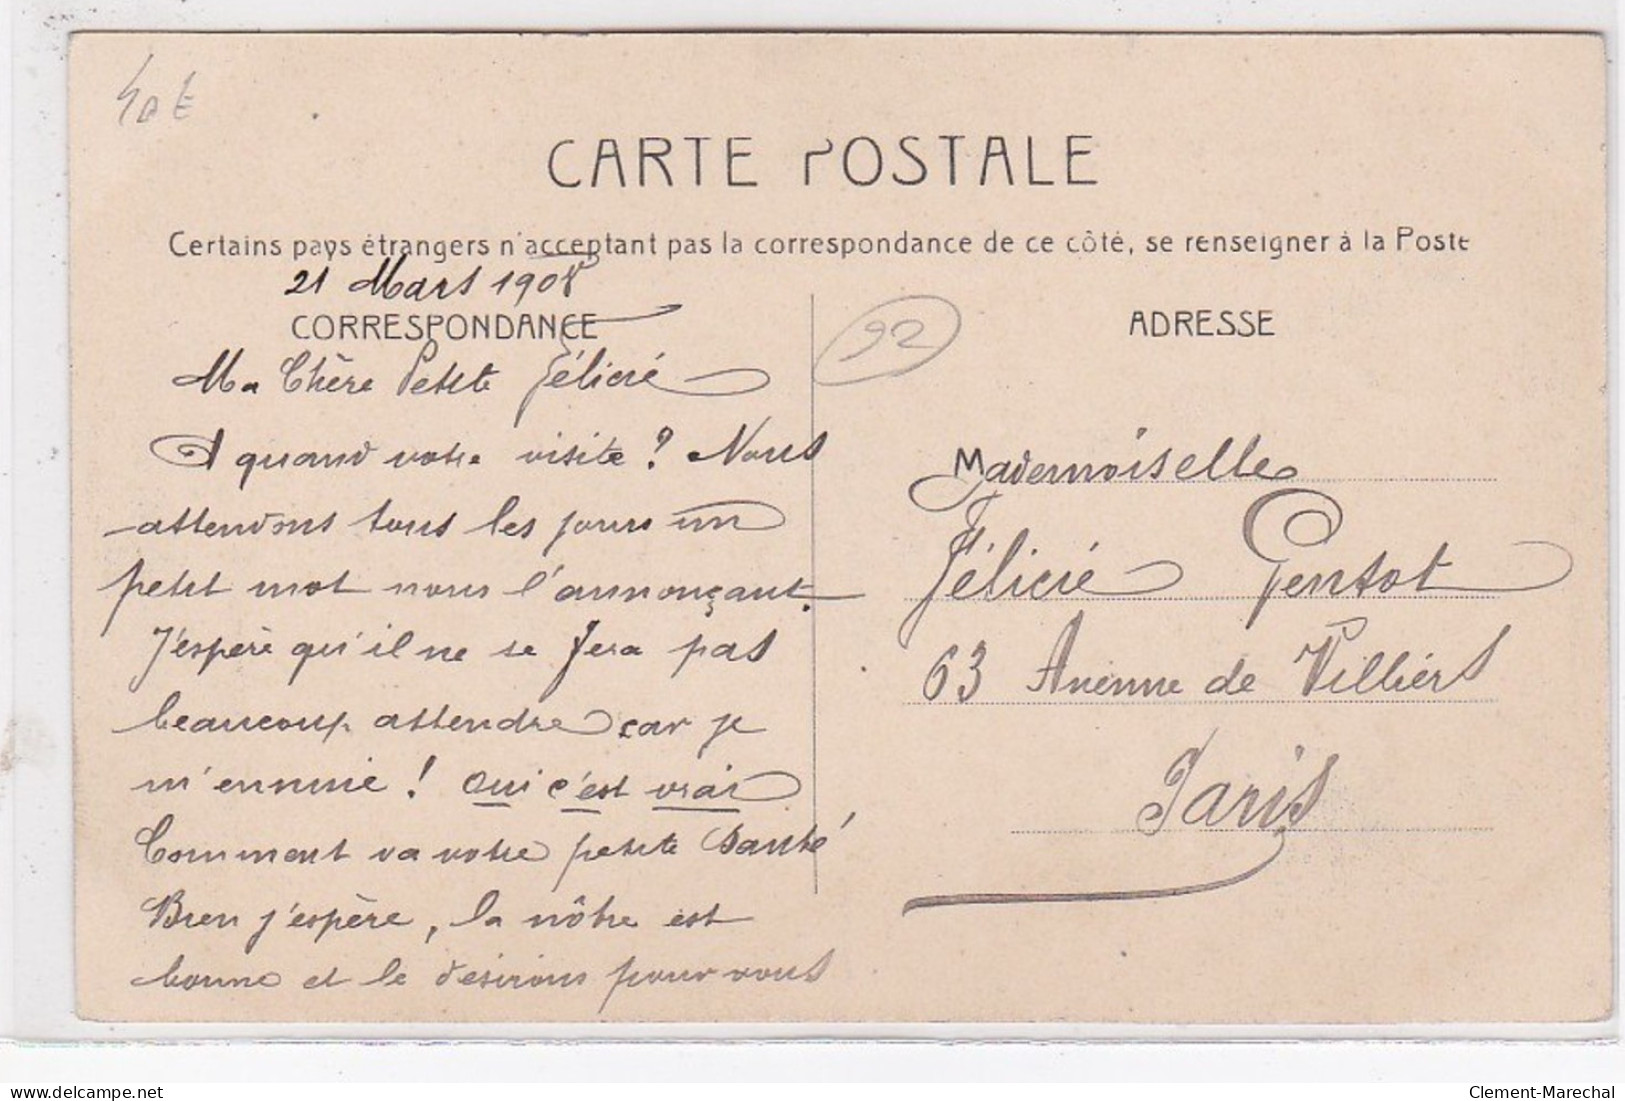 40 €
CARTE POSTALE
Certains pays étrangers n'acceptant pas la correspondance de ce côté, se renseigner à la Poste
21 Mars 1908
CORRESPONDANCE
Ma Chère Petite Félicié
A quand votre visite ? Nous
attendons tous les jours un
petit mot nous l'annonçant.
J'espère qu'il ne se fera pas
beaucoup attendre car je
m'ennuie ! Oui c'est vrai
Comment va votre petite Santé
Bien j'espère, la nôtre est
bonne et le désirons pour vous
92
ADRESSE
Mademoiselle
Félicié
63 Avenue de Villiers
Paris
delcampe.net
Clement-Marechal